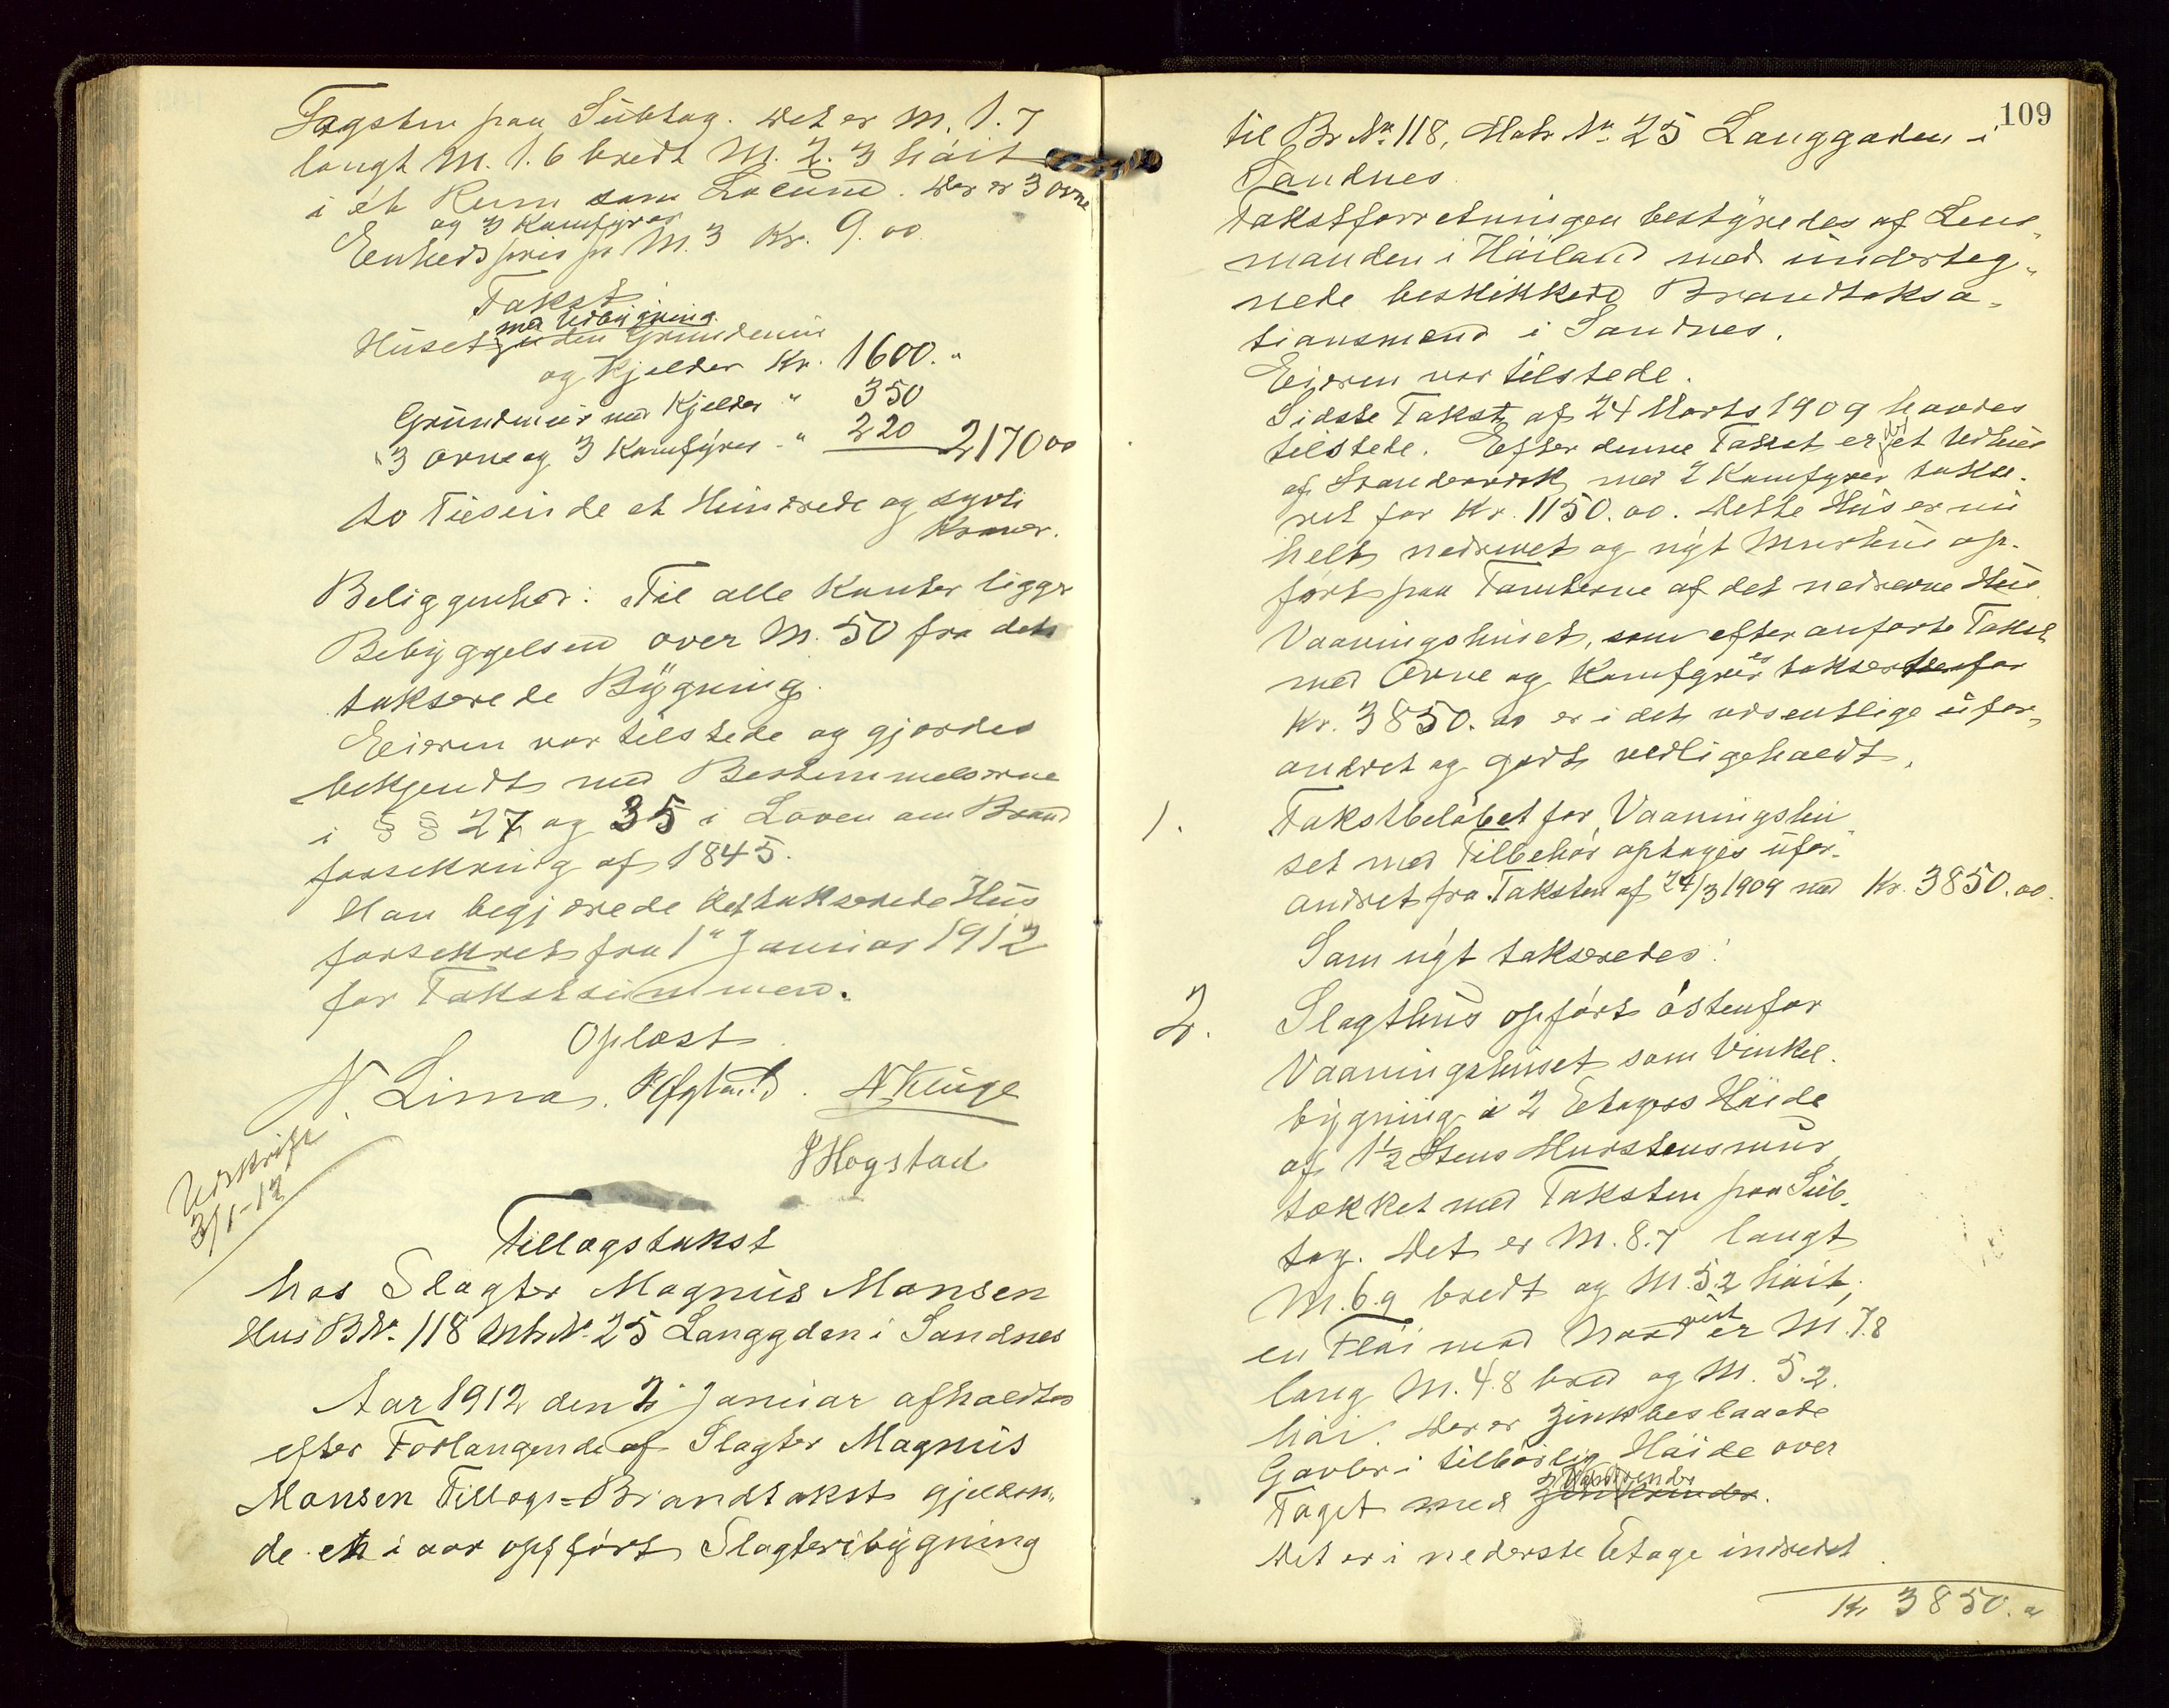 Tagsten paa Subtag. Det er M. 1.7
langt M. 1.6 bredt M. 2.3 höit
i et Rum som Locum. Der er 3 Ovne
og 3 Kamfyrer
Enhedspris pr M.3 Kr. 9.00
Takst
med Udbygning
Huset uden Grundmur
og Kjelder Kr. 1600."
Grundmur med Kjelder " 350
3 Ovne og 3 Kamfyrer " 220 2170 00
to Tusinde et Hundrede og sytti
Kroner.
Beliggenhed: Til alle Kanter ligger
Bebyggelsen over M. 50 fra det
takserede Bygning.
Eieren var tilstede og gjordes
bekjendt med Bestemmelserne
i §§ 27 og 35 i Loven om Brand
forsikring af 1845.
Han begjærede det takserede Hus
forsikret fra 1" Januar 1912
for Takstsummen.
Oplæst
N. Lima. N Kluge
J Hogstad
Udskrift
3/1-12
Tillægstakst
hos Slagter Magnus Monsen
Hus BN. 118 Mt. N. 25 Langgden i Sandnes
Aar 1912 den 2. Januar afholdtes
efter Forlangende af Slagter Magnus
Monsen Tillægs-Brandtakst gjelden-
de en i aar opført Slagteribygning
109
til Br. No. 118, Matr No. 25 Langgaden i
Sandnes
Takstforretningen bestyredes af Lens-
manden i Höiland med underteg-
nede beskikkede Brandtaksa-
tionsmænd i Sandnes.
Eieren var tilstede.
Sidste Takst af 24 Marts 1909 havdes
tilstede. Efter denne Takst er det et Udhus
af Standerværk med 2 Kamfyrer takse-
ret for Kr. 1150.00. Dette Hus er nu
helt nedrevet og nyt Murhus op-
fört paa Tomterne af det nedrevne Hus
Vaaningshuset, som efter anførte Takst
med Ovne og Kamfyrer er takseret for
Kr. 3850.00 er i det væsentlige ufor-
andret og godt vedligeholdt.
1. Takstbelöbet for Vaaningshu-
set med Tilbehör optages ufor-
andret fra Taksten af 24/3 1909 med Kr. 3850.00.
Som nyt takseredes:
2. Slagthus opfört östenfor
Vaaningshuset som Vinkel-
bygning i 2 Etages Höide
af 1½ Stens Murstensmur
tækket med Taksten paa Sub-
tag. Det er M. 8.7 langt
M. 6.9 bredt og M. 5.2 höit,
en Flöi mod Nordvest er M. 7.8
lang M. 4.8 bred og M. 5.2.
höi. Der er zinkbeslaaede
Gavler i tilbörlig Höide over
Taget med Vandrender
Zinkrender.
Det er i nederste Etage indredet
Kr 3850."